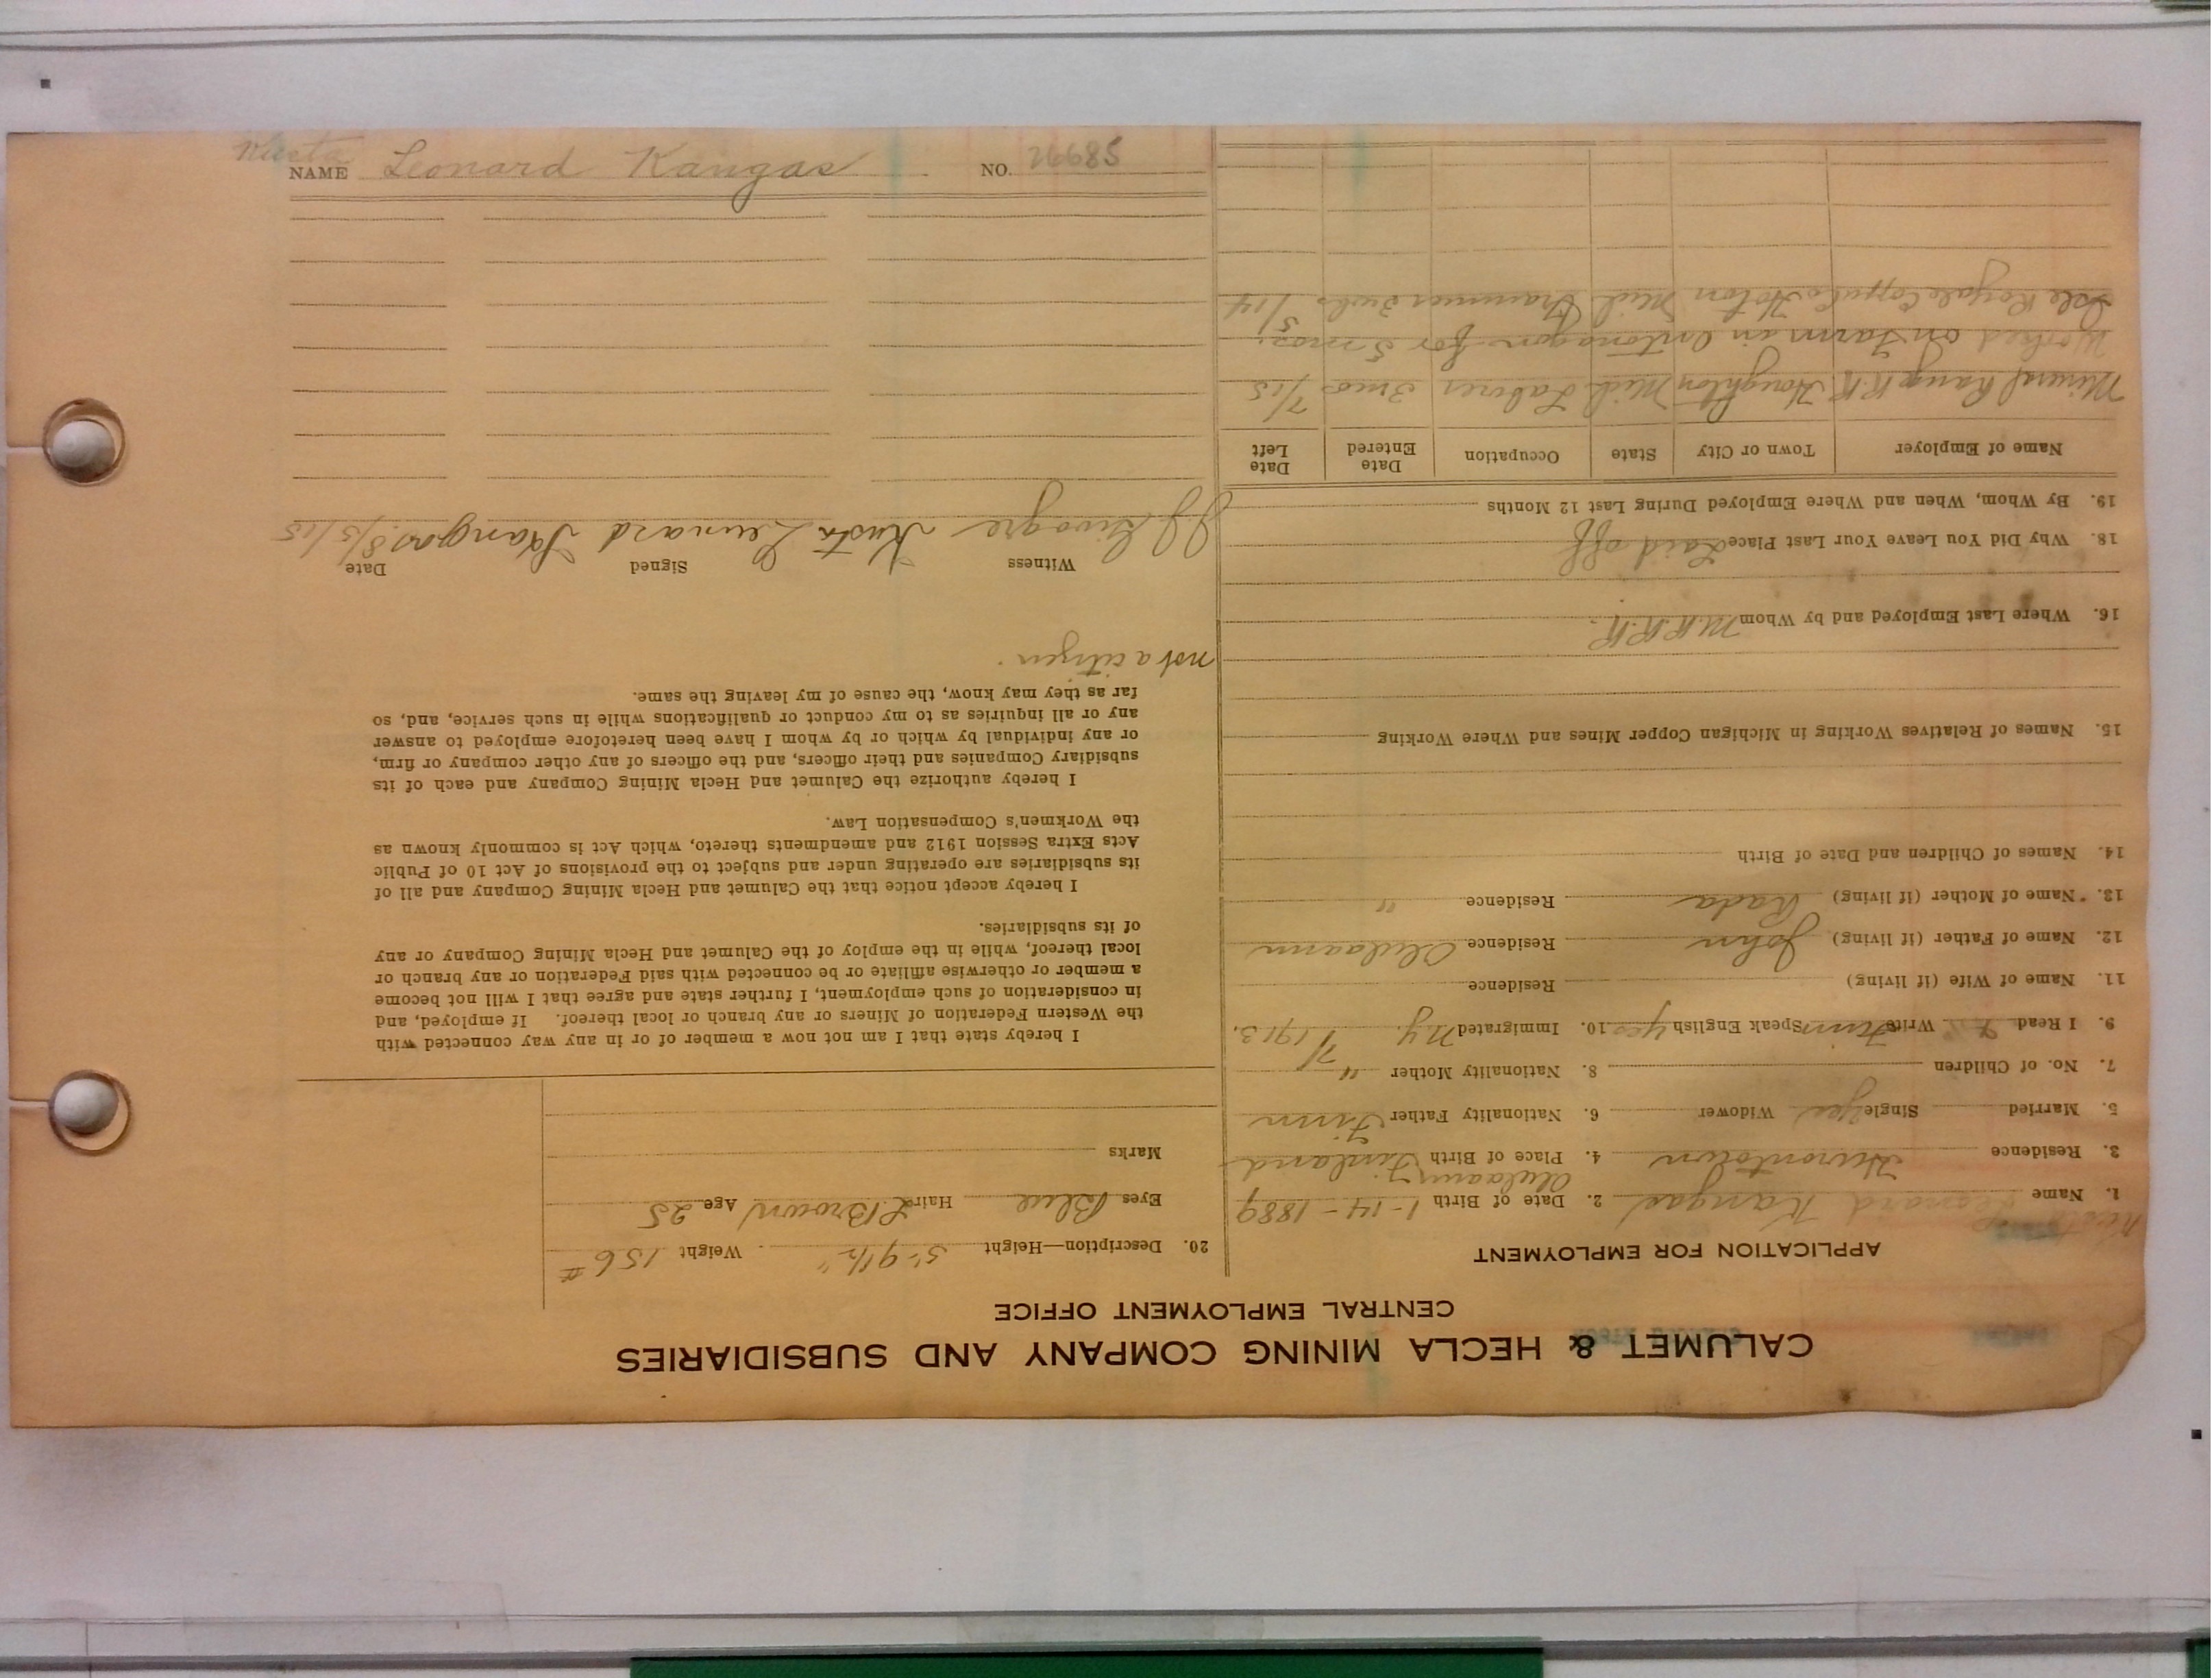 CALUMET & HECLA MINING COMPANY AND SUBSIDIARIES
CENTRAL EMPLOYMENT OFFICE
APPLICATION FOR EMPLOYMENT
1. Name Leonard Kangas 2. Date of Birth 1-14-1889
3. Residence Hurontown 4. Place of Birth Finland
5. Married Single yes Widower 6. Nationality Father Finn
7. No. of Children 8. Nationality Mother "
9. I Read Write Finn Speak English yes 10. Immigrated N.Y. 7/1913.
11. Name of Wife (if living) Residence
12. Name of Father (if living) John Residence
13. Name of Mother (if living) Residence "
14. Names of Children and Date of Birth
15. Names of Relatives Working in Michigan Copper Mines and Where Working
16. Where Last Employed and by Whom M.R.R.R.
18. Why Did You Leave Your Last Place Laid off
19. By Whom, When and Where Employed During Last 12 Months
Name of Employer Town or City State Occupation Date Entered Date Left
Mineral Range R.R. Houghton Mich Laborer 3 mos 7/15
Worked on Farm in Ontonagon for 5 mos.
Isle Royale Copper Co Hoton Mich Trammer 3 wks 5/14
20. Description—Height 5'-9 1/2" Weight 156#
Eyes Blue Hair L Brown Age 25
Marks
I hereby state that I am not now a member of or in any way connected with
the Western Federation of Miners or any branch or local thereof. If employed, and
in consideration of such employment, I further state and agree that I will not become
a member or otherwise affiliate or be connected with said Federation or any branch or
local thereof, while in the employ of the Calumet and Hecla Mining Company or any
of its subsidiaries.
I hereby accept notice that the Calumet and Hecla Mining Company and all of
its subsidiaries are operating under and subject to the provisions of Act 10 of Public
Acts Extra Session 1912 and amendments thereto, which Act is commonly known as
the Workmen's Compensation Law.
I hereby authorize the Calumet and Hecla Mining Company and each of its
subsidiary Companies and their officers, and the officers of any other company or firm,
or any individual by which or by whom I have been heretofore employed to answer
any or all inquiries as to my conduct or qualifications while in such service, and, so
far as they may know, the cause of my leaving the same.
not a citizen.
Witness Signed Date
Kusta Lennard Kangas 8/5/15
NAME Leonard Kangas NO. 26685